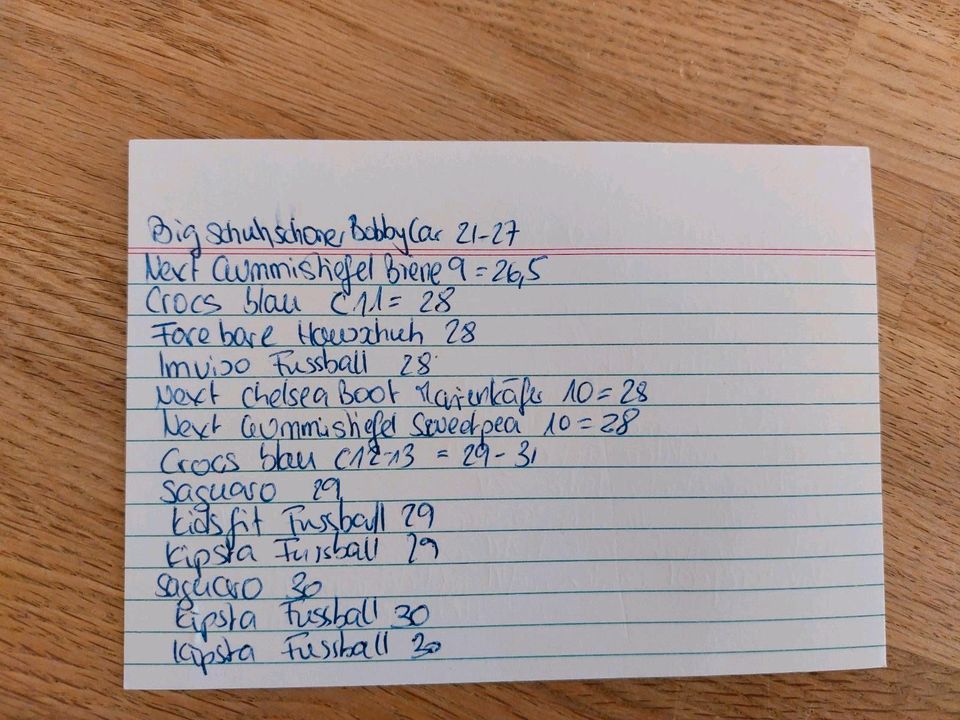 Big Schuhschoner BobbyCar 21-27
Next Gummistiefel Biene 9 = 26,5
Crocs blau C11 = 28
Fore bare Hausschuh 28
Imviso Fussball 28
Next Chelsea Boot Marienkäfer 10 = 28
Next Gummistiefel Sweetpea 10 = 28
Crocs blau C12-13 = 29-31
Saguaro 29
Kidsfit Fussball 29
Kipsta Fussball 29
Saguaro 30
Kipsta Fussball 30
Kipsta Fussball 30